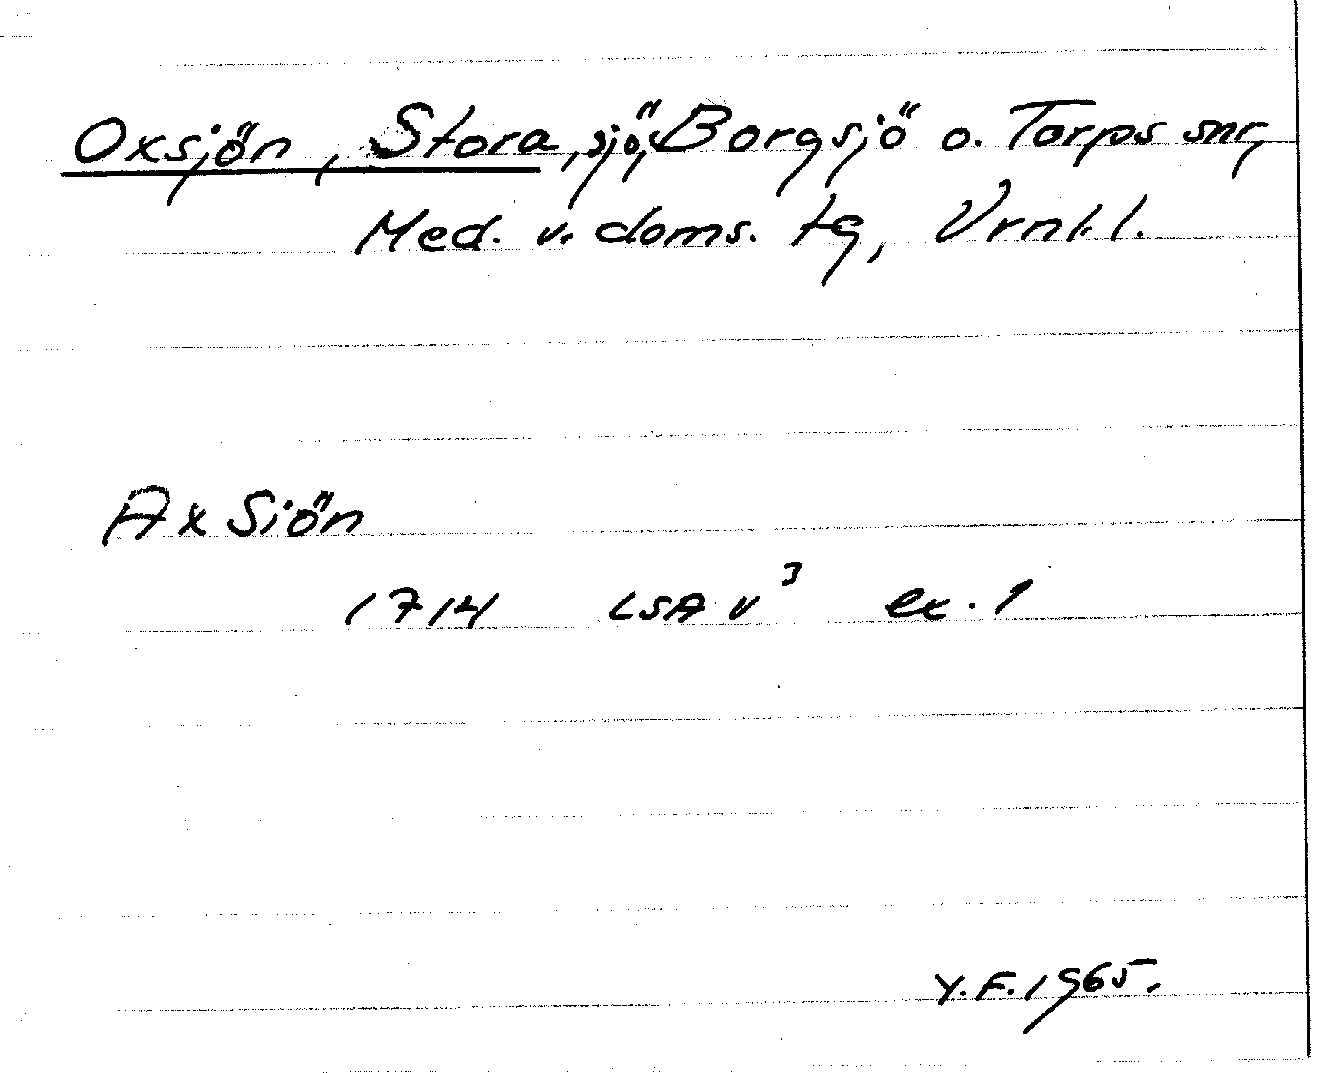 Oxsjön, Stora, sjö, Borgsjö o. Torps snr,
Med. v. doms. tg, Vrnl. l.
Ax Siön
1714 LSA V³ ex. 1
Y.F. 1965.